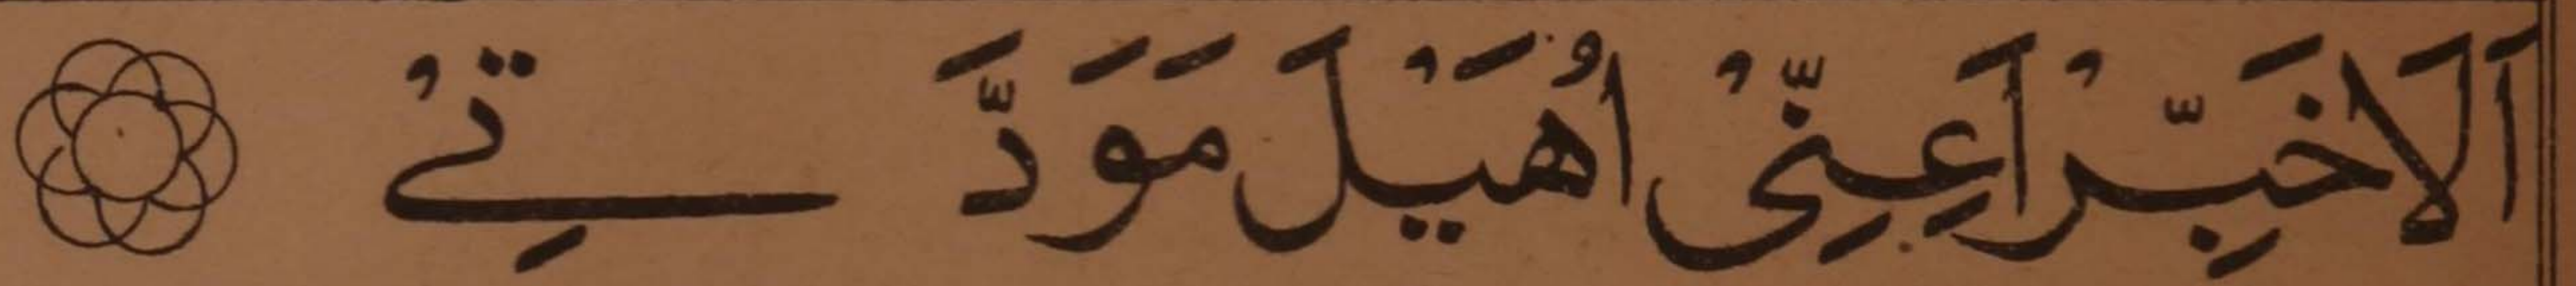 اَلَا خَبِّرْاَ عَنِّيْ اُهَيْلَ مَوَدَّتِيْ